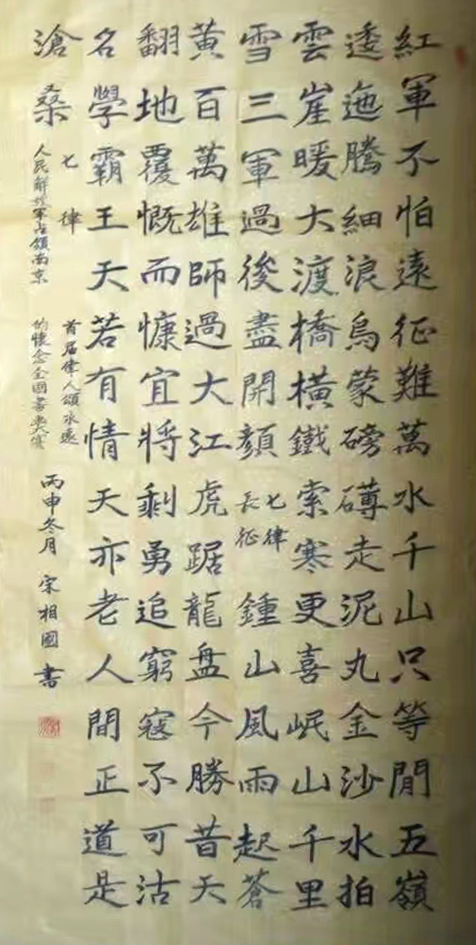 紅軍不怕遠征難萬水千山只等閒五嶺
逶迤騰細浪烏蒙磅礴走泥丸金沙水拍
雲崖暖大渡橋橫鐵索寒更喜岷山千里
雪三軍過後盡開顏七律長征鍾山風雨起蒼
黃百萬雄師過大江虎踞龍盤今勝昔天
翻地覆慨而慷宜將剩勇追窮寇不可沽
名學霸王天若有情天亦老人間正道是
滄桑
七律
人民解放軍占領南京
首屆偉人頌永遠
的懷念全國書畫賽
丙申冬月宋相國書